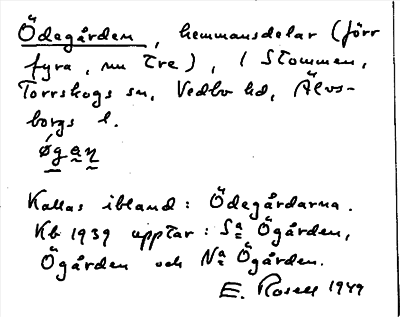 Ödegården, hemmansdelar (förr
fyra, nu tre), i Stommen,
Torrskogs sn, Vedbo hd, Älvs-
borgs l.
ǿgan
Kallas ibland: Ödegårdarna.
Kb 1939 upptar: Sa Ögården,
Ögården och Na Ögården.
E. Rosell 1949